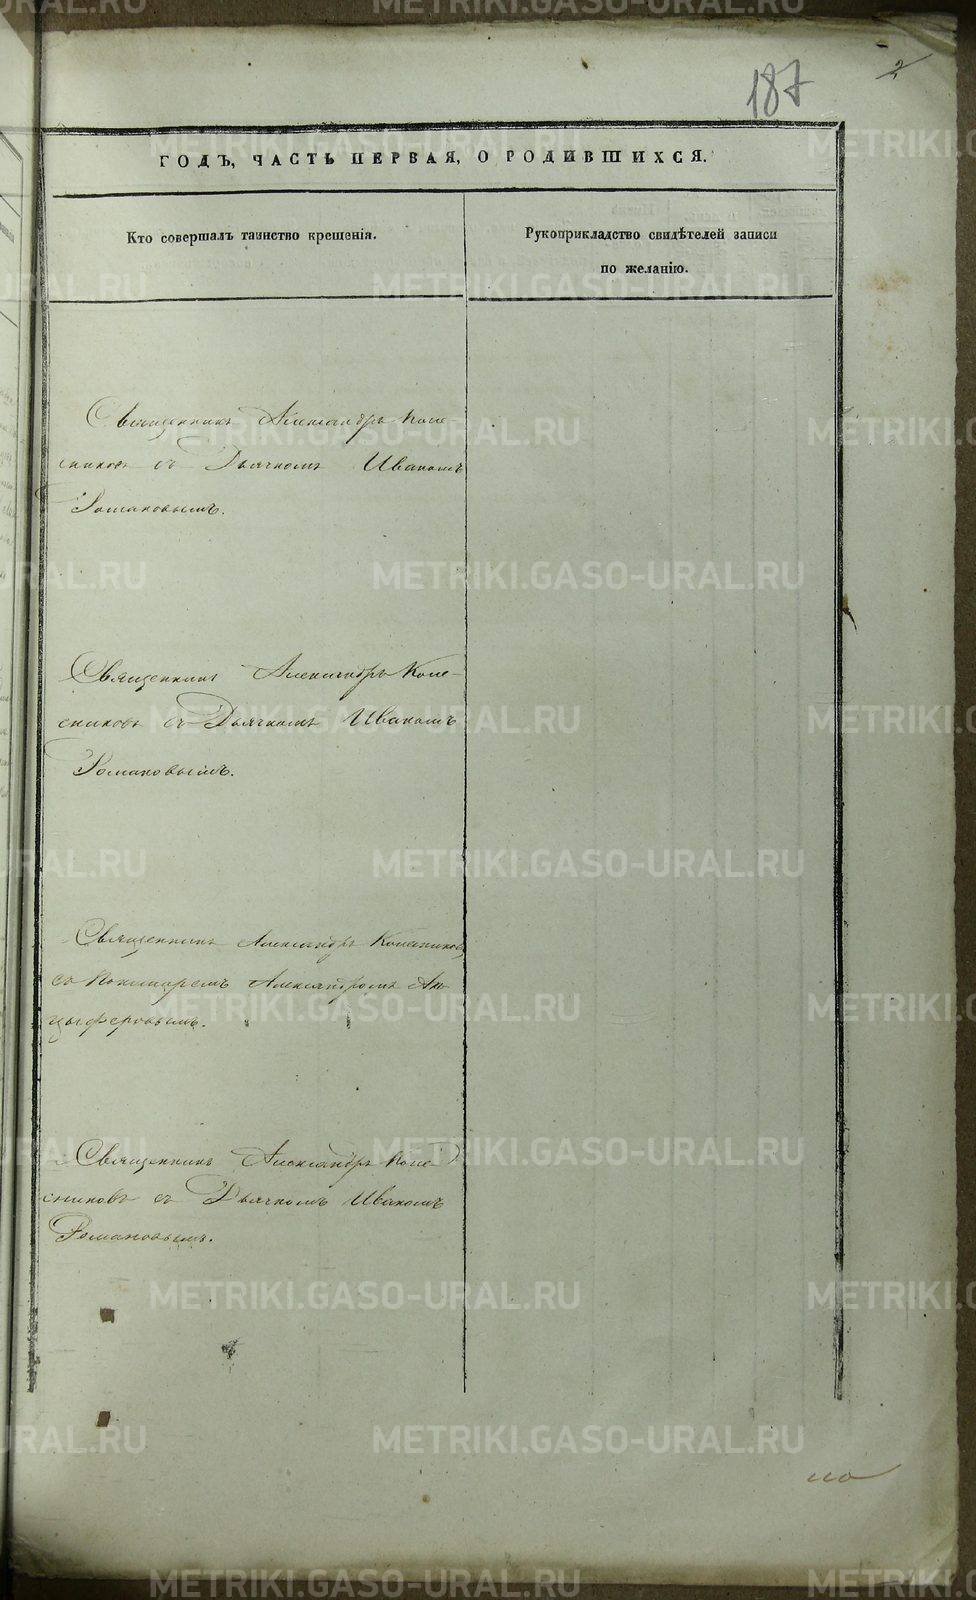 187
2
ГОДЪ, ЧАСТЬ ПЕРВАЯ, О РОДИВШИХСЯ.
Кто совершалъ таинство крещенія.
Рукоприкладство свидѣтелей записи
по желанію.
Священникъ Александръ Коле-
сниковъ съ Дьячкомъ Иваномъ
Романовымъ.
Священникъ Александръ Коле-
сниковъ съ Дьячкомъ Иваномъ
Романовымъ.
Священникъ Александръ Колесниковъ
съ Пономаремъ Александромъ Ан-
цыферовымъ.
Священникъ Александръ Коле-
сниковъ съ Дьячкомъ Иваномъ
Романовымъ.
METRIKI.GASO-URAL.RU